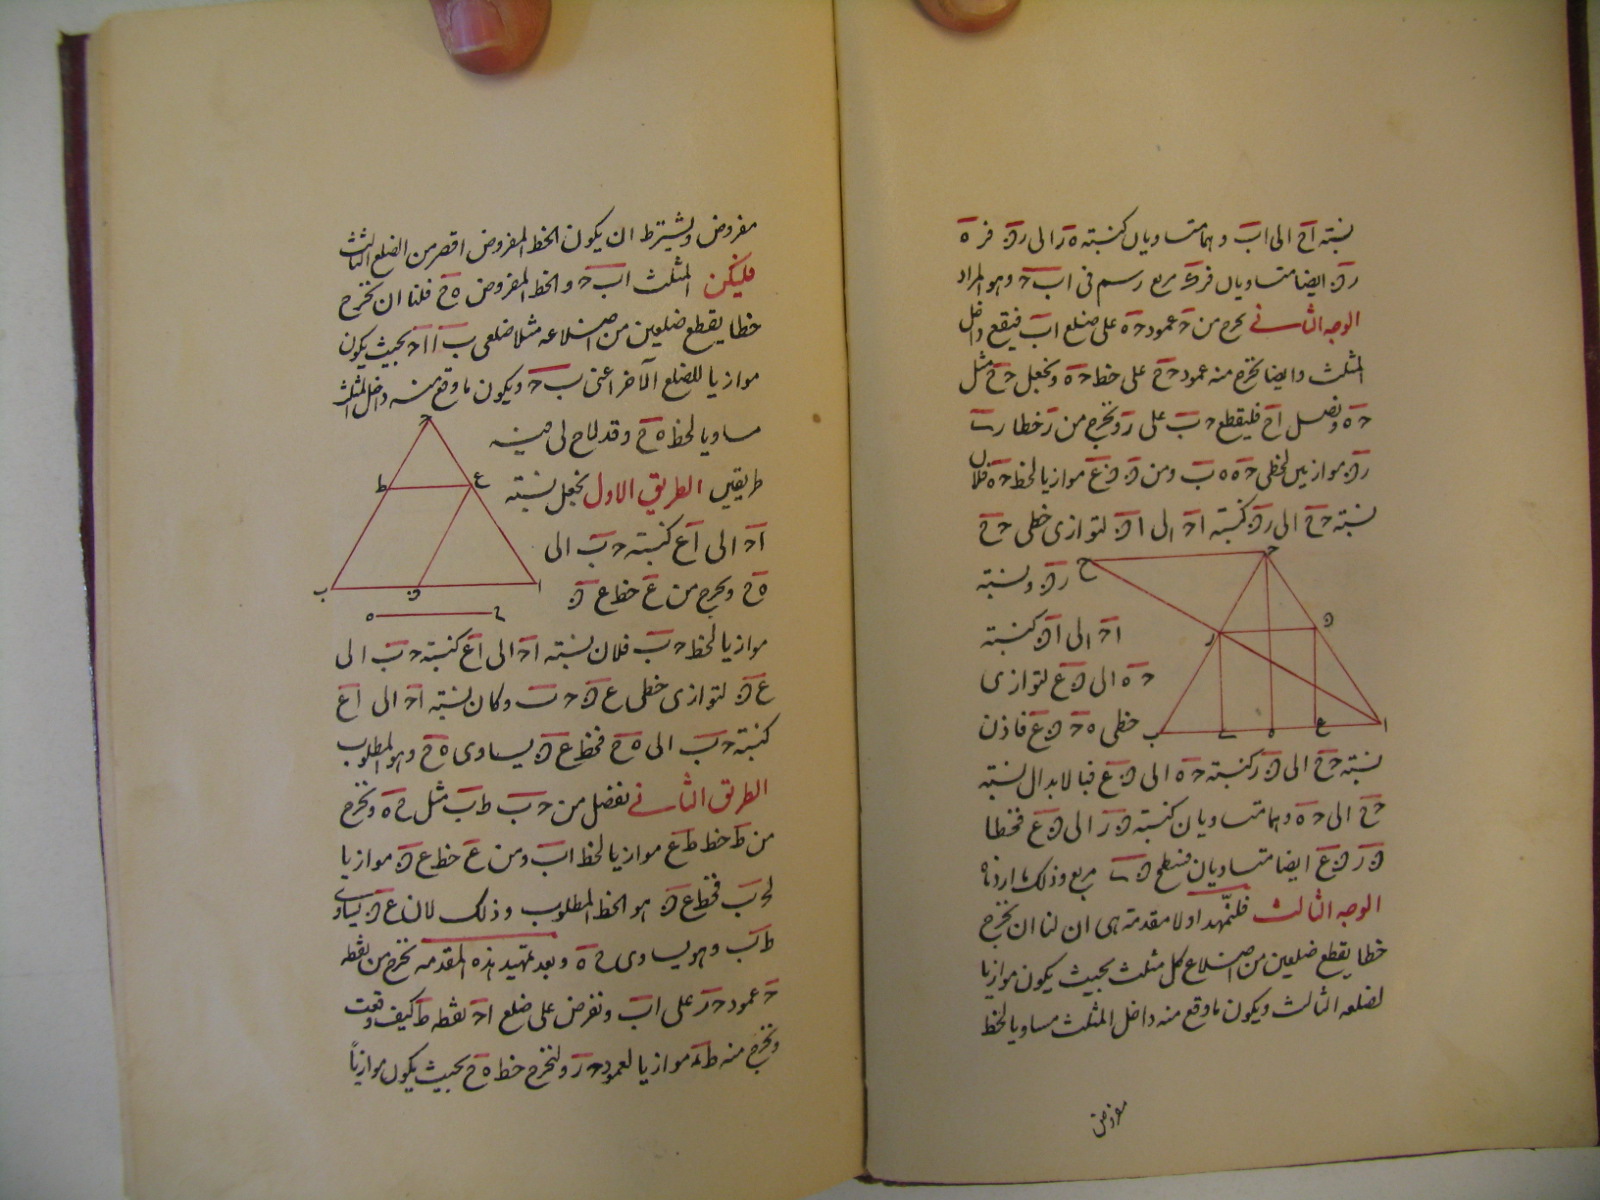 نسبته اح الى اب وهما متساويان كنسبته ه ر الى ر ق فر ه
ر ق ايضا متساويان فر ق مربع رسم فى اب ح وهو المراد
الوجه الثانے نخرج من ح عمود ح ه على ضلع اب فيقع داخل
المثلث وايضا نخرج منه عمود ح خ على خط ح ه ونجعل ح خ مثل
ح ه ونصل اخ فليقطع ح ب على ر ونخرج من ر خطا ر ے
ر ق موازيين لخطى ح ه ه ب ومن ق ق ع موازيا لخط ح ه فلان
نسبته ح خ الى ر ق كنسبته اح الى اق لتوازى خطى ح خ
ر ق ونسبته
اح الى اق كنسبته
ح ه الى ق ع لتوازى
خطى ه ح ق ع فاذن
نسبته ح خ الى ق ر كنسبته ح ه الى ق ع فبالابدال نسبته
ح خ الى ح ه وهما متساويان كنسبته ق ر الى ق ع فخطا
ق ر ق ع ايضا متساويان فسطح ق ے مربع وذلك ما اردناه
الوجه الثالث فلنمهد اولا مقدمة هى ان لنا ان نخرج
خطا يقطع ضلعين من اضلاع كل مثلث بحيث يكون موازيا
لضلعه الثالث ويكون ما وقع منه داخل المثلث مساويا لخط
مفروض
مفروض ويشترط ان يكون الخط المفروض اقصر من الضلع الثالث
فليكن المثلث اب ح والخط المفروض ه خ فلنا ان نخرج
خطا يقطع ضلعين من اضلاعه مثلا ضلعى ب ا اح بحيث يكون
موازيا للضلع الآخر اعنى ب ح ويكون ما وقع منه داخل المثلث
مساويا لخط ه خ وقد لاح لى فيه
طريقين الطريق الاول نجعل نسبته
اح الى اع كنسبته ح ب الى
ه خ ونخرج من ع خط ع ق
موازيا لخط ح ب فلان نسبته اح الى اع كنسبته ح ب الى
ع ق لتوازى خطى ع ق ح ب وكان نسبته اح الى اع
كنسبته ح ب الى ه خ فخط ع ق يساوى ه خ وهو المطلوب
الطريق الثانے نفصل من ح ب ط ب مثل خ ه ونخرج
من ط خط ط ع موازيا لخط اب ومن ع خط ع ق موازيا
لح ب فخط ع ق هو الخط المطلوب وذلك لان ع ق يساوى
ط ب وهو يساوى خ ه وبعد تمهيد هذه المقدمه نخرج من نقطه
ح عمود ح ر على اب ونفرض على ضلع اح نقطه ط كيف وقعت
ونخرج منه ط موازيا لعمود ح ر ولنخرج خط ه خ بحيث يكون موازياً